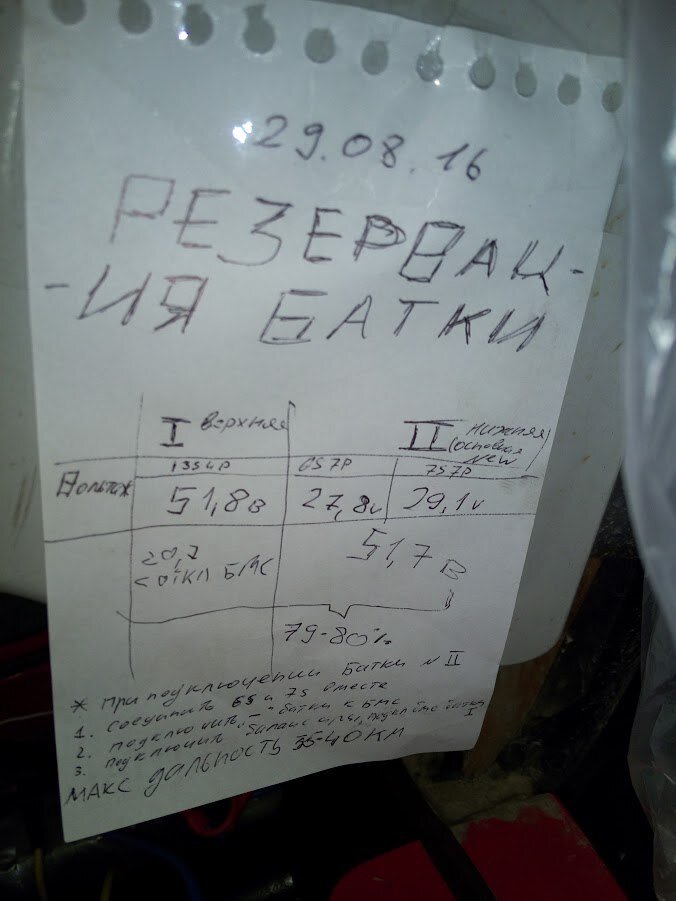 29.08.16
РЕЗЕРВАЦ-
-ИЯ БАТКИ
I верхняя
II нижняя
(основная
new
13S4P 6S7P 7S7P
Вольтаж 51,8в 27,8v 29,1v
20,2 51,7 в
откл БМС
79-80%
* При подключении батки N II
1. Соединить 6S и 7S вместе
2. подключить "-" батки к БМС
3. подключить баланс
I
МАКС дальность 35-40 КМ